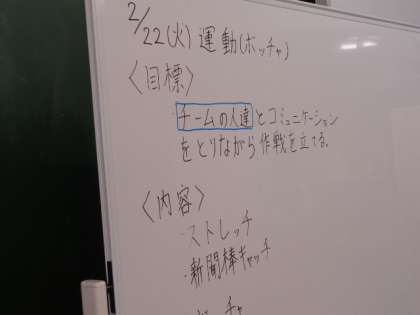 2/22(火) 運動(ボッチャ)
〈目標〉
チームの人達とコミュニケーション
をとりながら作戦を立てる。
〈内容〉
・ストレッチ
・新聞棒キャッチ